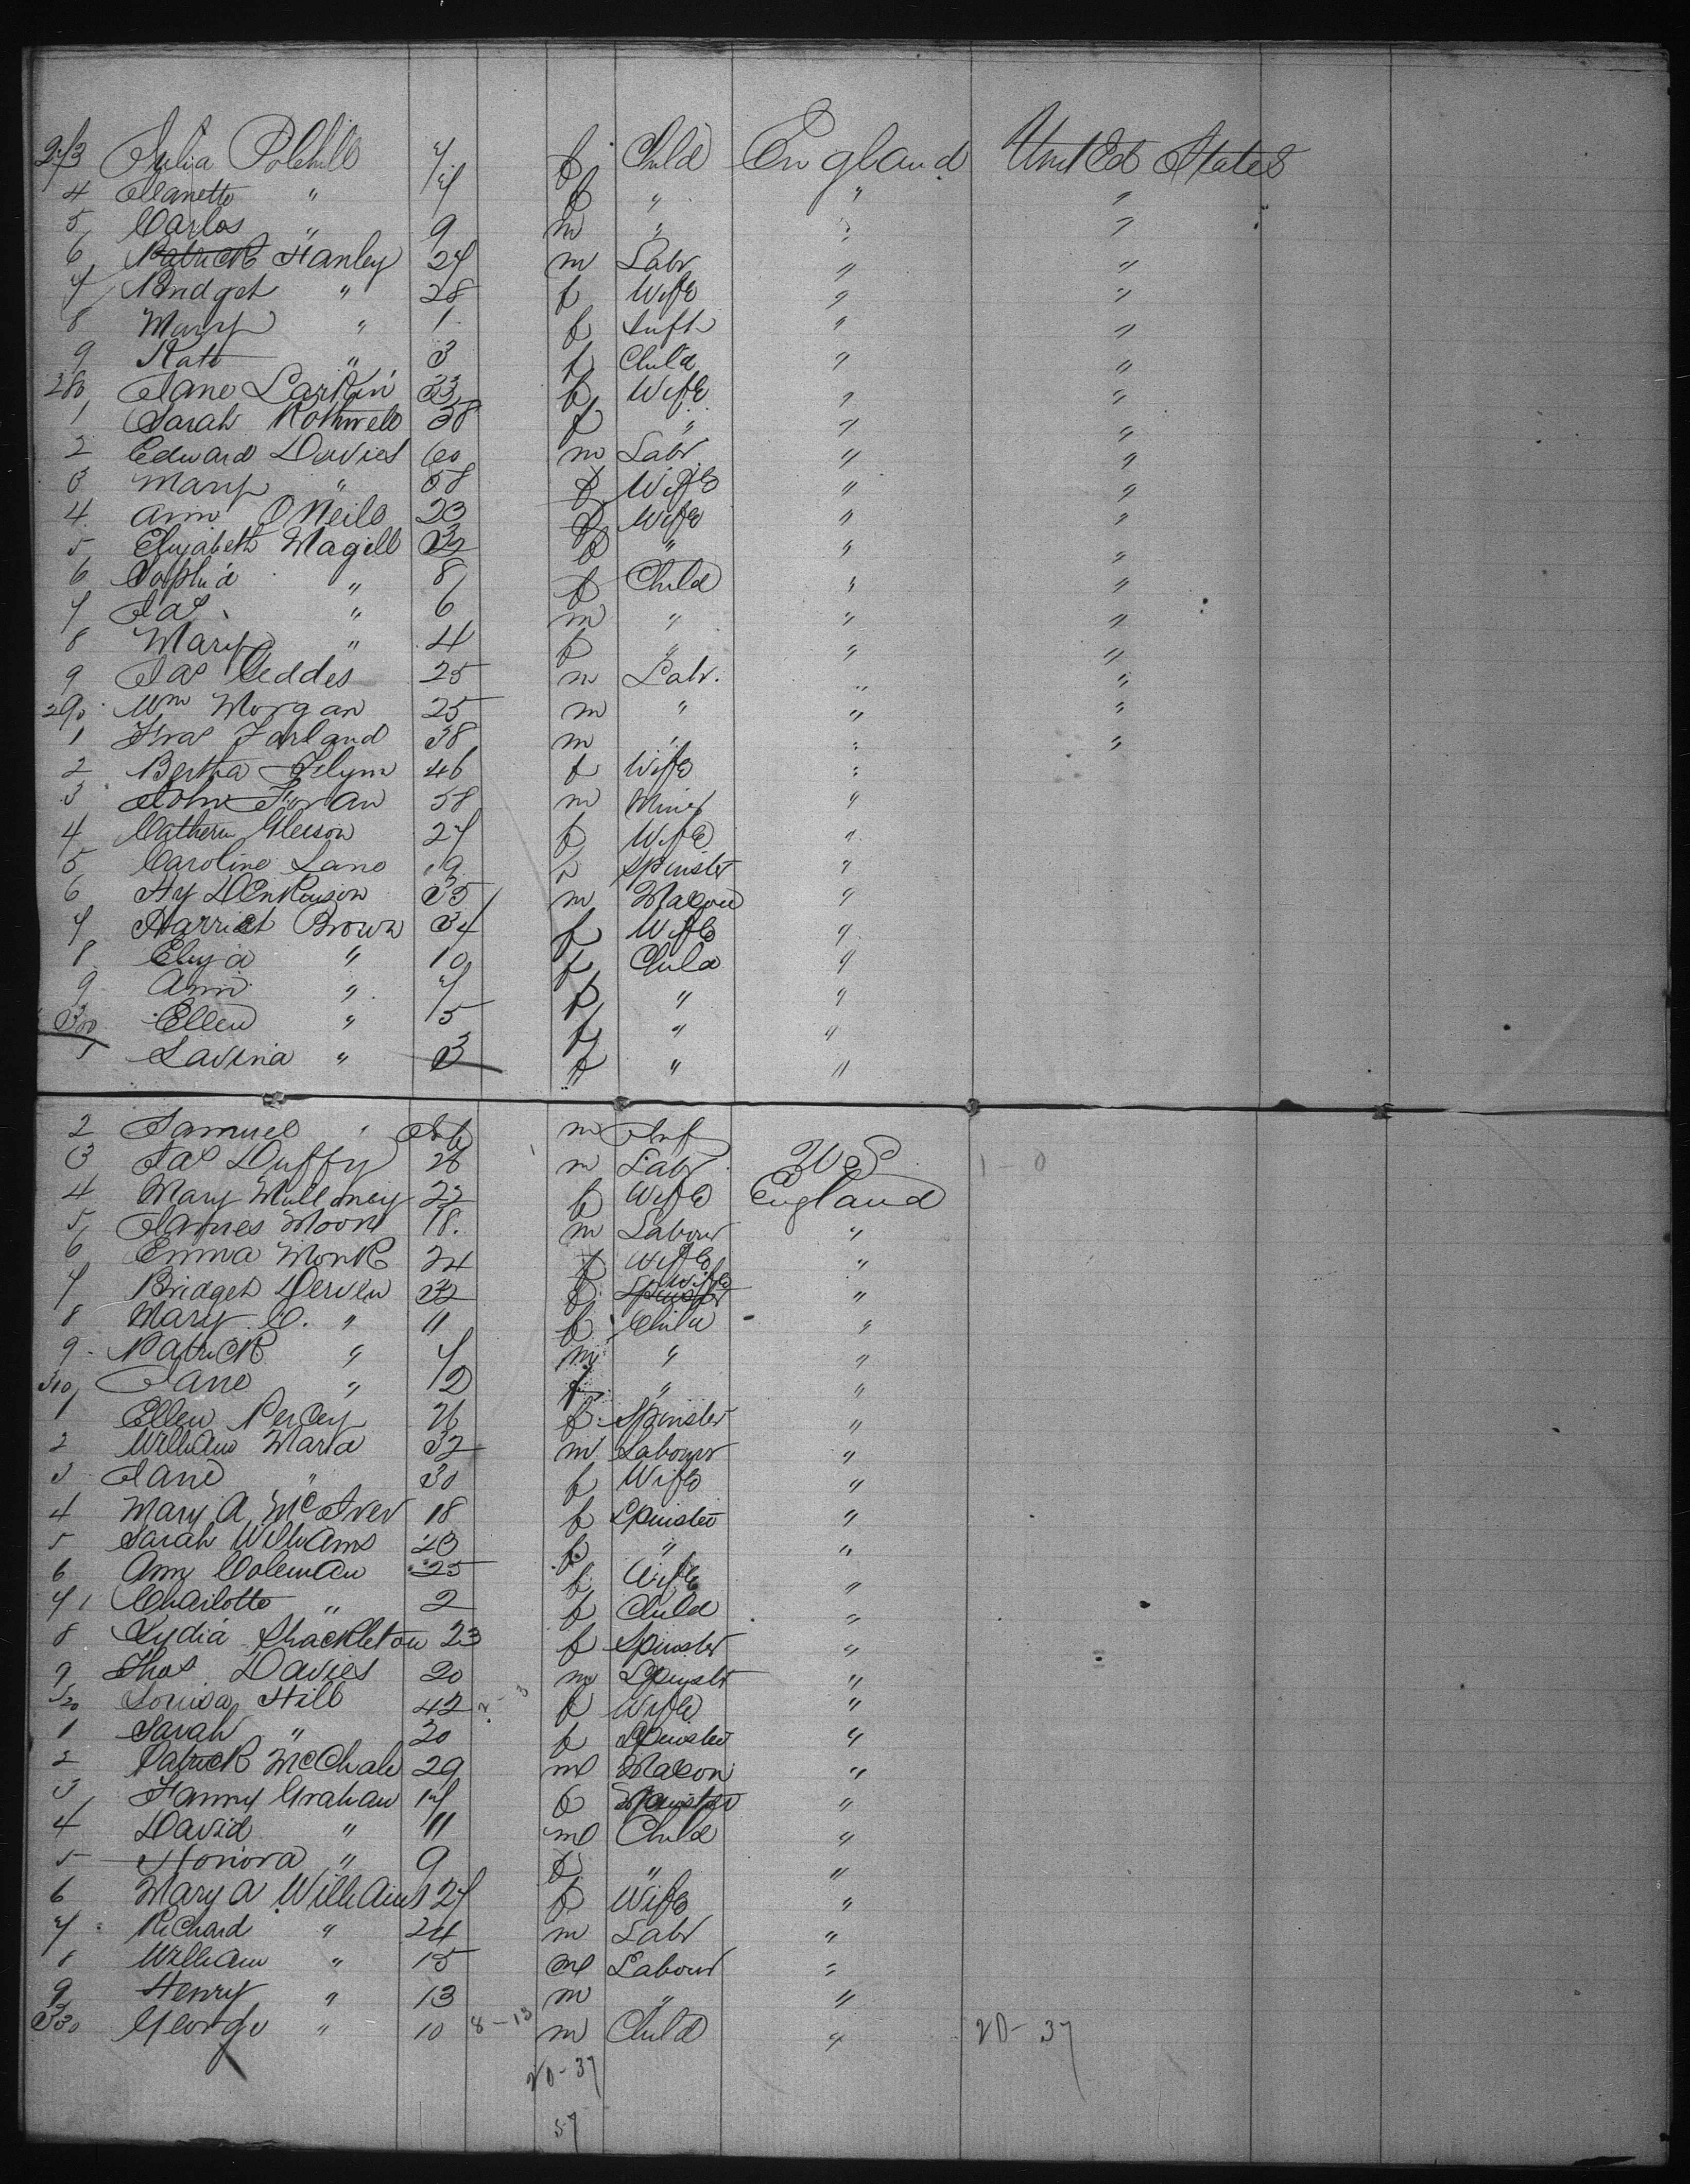 273 Julia Polehill 7 f Child England United States
4 Nanetto " 7 f " " "
5 Carlos " 9 m " " "
6 Patrick Hanley 27 m Labr " "
7 Bridget " 28 f Wife " "
8 Mary " 1 f Inft " "
9 Kate " 3 f Child " "
280 Jane Larkin 33 f Wife " "
1 Sarah Rothwell 38 f " " "
2 Edward Davies 60 m Labr " "
3 Mary " 58 f Wife " "
4 Ann O'Neill 23 f Wife " "
5 Elizabeth Magill 32 f " " "
6 Sophia " 8 f Child " "
7 Jas " 6 m " " "
8 Mary " 4 f " " "
9 Jas Geddes 25 m Labr. " "
290 Wm Morgan 25 m " " "
1 Fras Farland 38 m " " "
2 Bertha Flynn 46 f Wife "
3 John Foran 58 m Miner "
4 Cathern Gleeson 27 f Wife "
5 Caroline Lane 19 f Spinster "
6 Hy Denkinson 35 m Mason "
7 Harriet Brown 34 f Wife "
8 Eliza " 10 f Child "
9 Ann " 7 f " "
300 Ellen " 5 f " "
1 Lavinia " 3 f " "
2 Samuel " Inf m Inf
3 Jas Duffy 26 m Labr U S 1-0
4 Mary Mullaney 22 f Wife England
5 James Moon 18. m Labour "
6 Emma Monk 24 f Wife "
7 Bridget Derven 32 f Spinster Wife "
8 Mary C. " 11 f Child "
9 Patrick " 7 m " "
310 Jane " 2 f " "
1 Ellen Percy 26 f Spinster "
2 William Ward 32 m Labour "
3 Jane " 30 f Wife "
4 Mary A McIver 18 f Spinster "
5 Sarah Williams 23 f " "
6 Amy Coleman 25 f Wife "
7 Charlotte " 2 f Child "
8 Lydia Shackleton 23 f Spinster "
9 Thos Davies 20 m Spinst "
320 Louisa Hill 42 2-3 f Wife "
1 Sarah " 20 f Spinster "
2 Patrick McChale 29 ml Mason "
3 Fanny Graham 17 f Spinster "
4 David " 11 ml Child "
5 Honora " 9 f " "
6 Mary A Williams 27 f Wife "
7 Richard " 24 m Labr "
8 William " 15 ml Labour "
9 Henry " 13 m " "
330 George " 10 8-13 m Child " 20-37
20-37
57